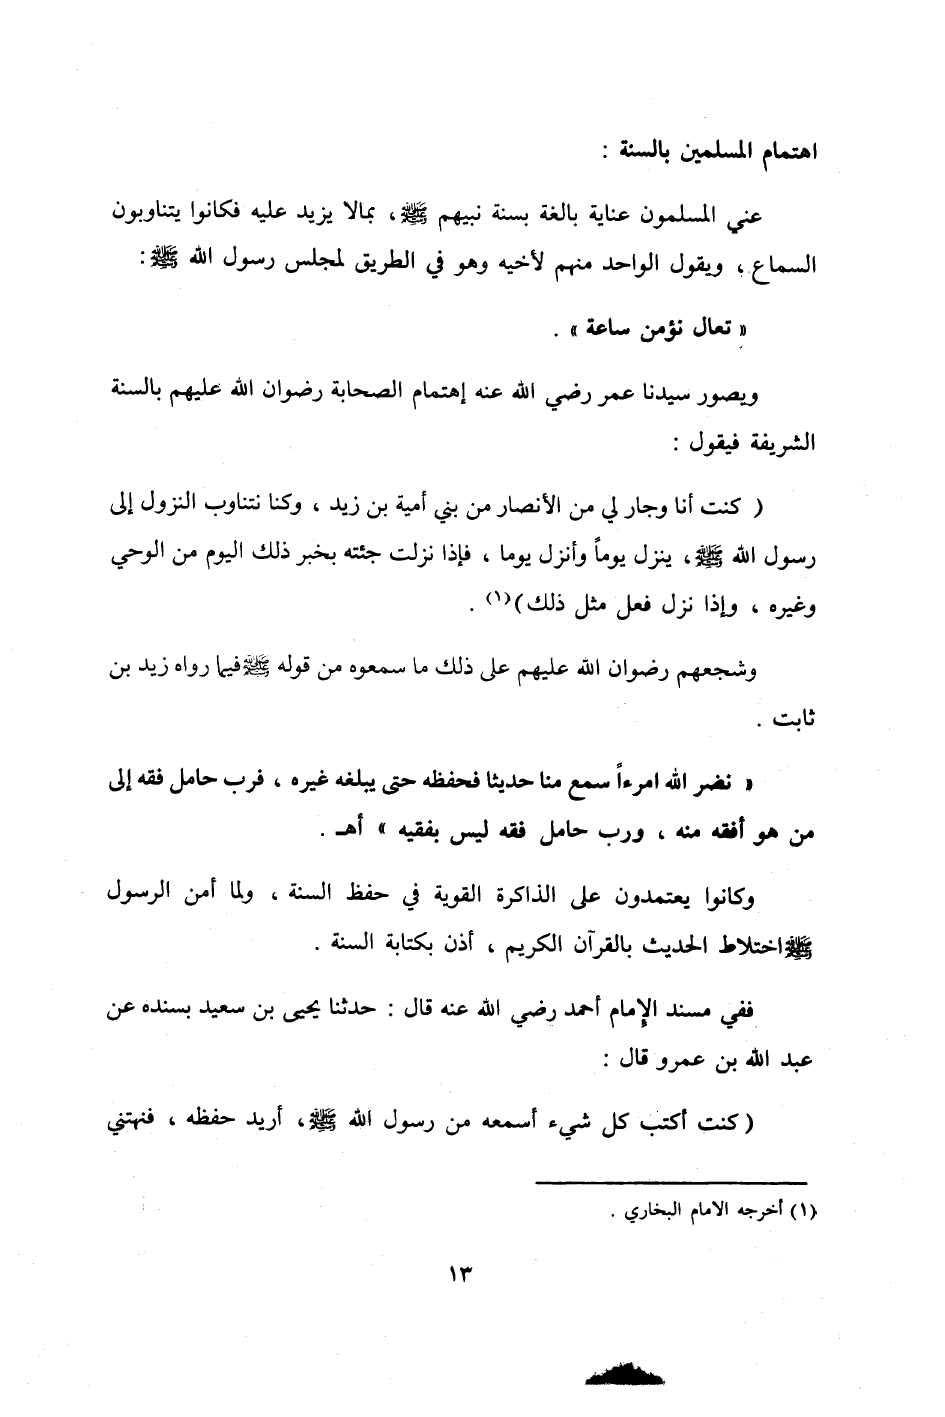 اهتمام المسلمين بالسنة :
عني المسلمون عناية بالغة بسنة نبيهم ﷺ ، بمالا يزيد عليه فكانوا يتناوبون
السماع ، ويقول الواحد منهم لأخيه وهو في الطريق لمجلس رسول الله ﷺ :
« تعال نؤمن ساعة » .
ويصور سيدنا عمر رضي الله عنه إهتمام الصحابة رضوان الله عليهم بالسنة
الشريفة فيقول :
( كنت أنا وجار لي من الأنصار من بني أمية بن زيد ، وكنا نتناوب النزول إلى
رسول الله ﷺ ، ينزل يوماً وأنزل يوما ، فإذا نزلت جئته بخبر ذلك اليوم من الوحي
وغيره ، وإذا نزل فعل مثل ذلك )(١) .
وشجعهم رضوان الله عليهم على ذلك ما سمعوه من قوله ﷺ فيما رواه زيد بن
ثابت .
« نضر الله امرءاً سمع منا حديثا فحفظه حتى يبلغه غيره ، فرب حامل فقه إلى
من هو أفقه منه ، ورب حامل فقه ليس بفقيه » أهـ .
وكانوا يعتمدون على الذاكرة القوية في حفظ السنة ، ولما أمن الرسول
ﷺ اختلاط الحديث بالقرآن الكريم ، أذن بكتابة السنة .
ففي مسند الإمام أحمد رضي الله عنه قال : حدثنا يحيى بن سعيد بسنده عن
عبد الله بن عمرو قال :
( كنت أكتب كل شيء أسمعه من رسول الله ﷺ ، أريد حفظه ، فنهتني
(١) أخرجه الامام البخاري .
١٣